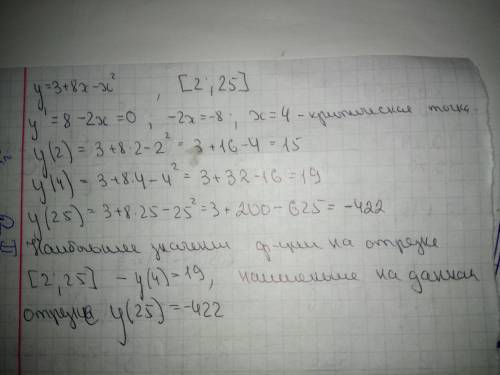 y=3+8x-x² , [2;25]
y'=8-2x=0, -2x=-8; x=4 - критическая точка
y(2)=3+8·2-2²=3+16-4=15
y(4)=3+8·4-4²=3+32-16=19
y(25)=3+8·25-25²=3+200-625=-422
Наибольшее значении ф-ции на отрезке
[2;25] - y(4)=19, наименьшие на данном
отрезке y(25)=-422